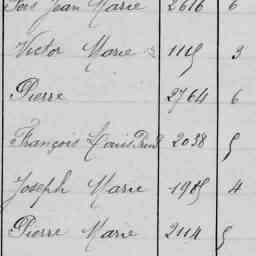 Jean Marie 2616 6
Victor Marie 1115 3
Pierre 2764 6
François Louis 2038 5
Joseph Marie 1905 4
Pierre Marie 2114 5